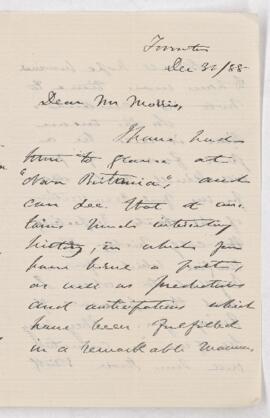 Toronto
Dec 31/88
Dear Mr Morris,
I have had
time to glance at
"Nova Brittania", and
can see that it con-
tains much interesting
history, in which you
have borne a part,
as well as predictions
and anticipations which
have been fulfilled
in a remarkable manner.